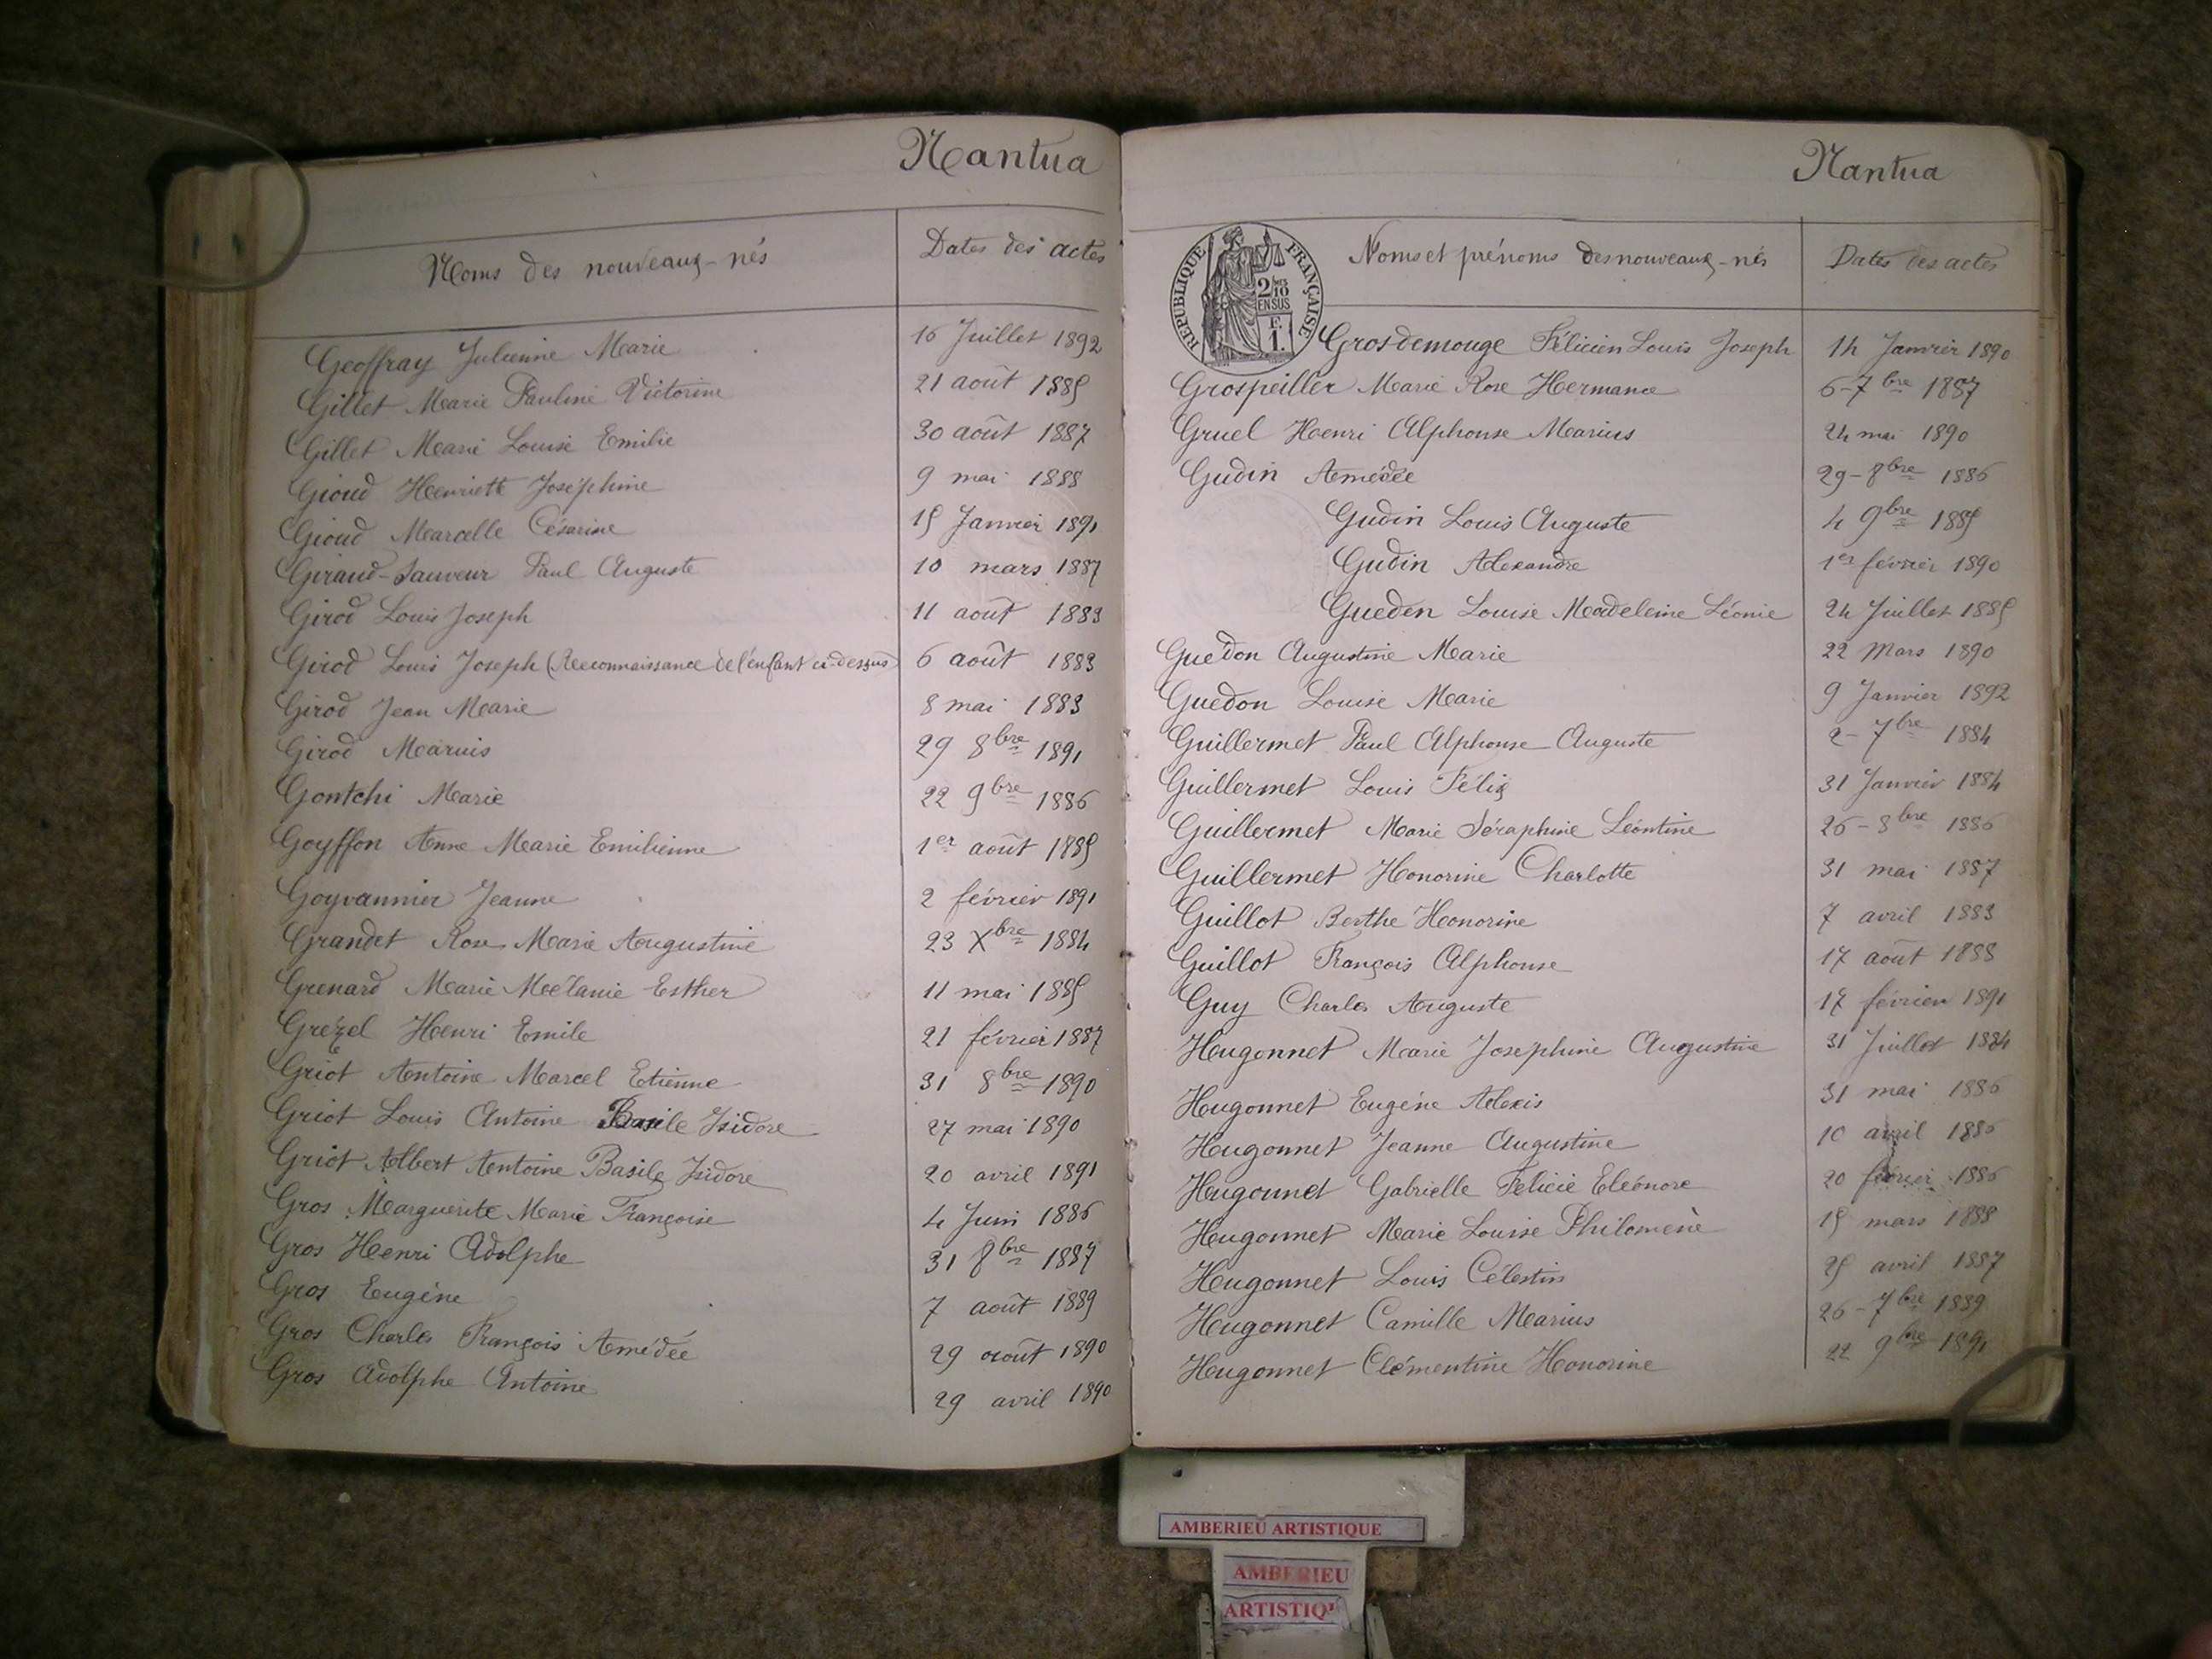 Nantua
Noms des nouveaux-nés Dates des actes
Geoffray Julienne Marie 16 Juillet 1892
Gillet Marie Pauline Victorine 21 août 1885
Gillet Marie Louise Emilie 30 août 1887
Gioud Henriette Joséphine 9 mai 1888
Gioud Marcelle Césarine 15 Janvier 1891
Giraud-Sauveur Paul Auguste 10 mars 1887
Girod Louis Joseph 11 août 1883
Girod Louis Joseph (Reconnaissance de l'enfant ci-dessus) 6 août 1883
Girod Jean Marie 8 mai 1883
Girod Marius 29 8bre 1891
Gontchi Marie 22 9bre 1886
Goyffon Anne Marie Emilienne 1er août 1885
Goyvannier Jeanne 2 février 1891
Grandet Rose Marie Augustine 23 Xbre 1884
Grenard Marie Mélanie Esther 11 mai 1885
Grézel Henri Emile 21 février 1887
Griot Antoine Marcel Etienne 31 8bre 1890
Griot Louis Antoine Basile Isidore 27 mai 1890
Griot Albert Antoine Basile Isidore 20 avril 1891
Gros Marguerite Marie Françoise 4 Juin 1886
Gros Henri Adolphe 31 8bre 1887
Gros Eugène 7 août 1889
Gros Charles François Amédée 29 août 1890
Gros Adolphe Antoine 29 avril 1890
Nantua
Noms et prénoms des nouveaux-nés Dates des actes
REPUBLIQUE FRANÇAISE
2/10
EN SUS
F.
1.
Grosdemouge Félicien Louis Joseph 14 Janvier 1890
Grospeiller Marie Rose Hermance 6-7bre 1887
Gruel Henri Alphonse Marius 24 mai 1890
Gudin Amédée 29-8bre 1886
Gudin Louis Auguste 4 9bre 1885
Gudin Alexandre 1er février 1890
Gueden Louise Madeleine Léonie 24 Juillet 1885
Guedon Augustine Marie 22 Mars 1890
Guedon Louise Marie 9 Janvier 1892
Guillermet Paul Alphonse Auguste 2-7bre 1884
Guillermet Louis Félix 31 Janvier 1884
Guillermet Marie Séraphine Léontine 26-8bre 1886
Guillermet Honorine Charlotte 31 mai 1887
Guillot Berthe Honorine 7 avril 1883
Guillot François Alphonse 17 août 1888
Guy Charles Auguste 17 février 1891
Hugonnet Marie Joséphine Augustine 31 Juillet 1884
Hugonnet Eugène Alexis 31 mai 1886
Hugonnet Jeanne Augustine 10 avril 1886
Hugonnet Gabrielle Félicie Eléonore 20 février 1886
Hugonnet Marie Louise Philomène 15 mars 1888
Hugonnet Louis Célestin 25 avril 1887
Hugonnet Camille Marius 26-7bre 1889
Hugonnet Clémentine Honorine 22 9bre 1891
AMBERIEU ARTISTIQUE
AMBERIEU
ARTISTIQU